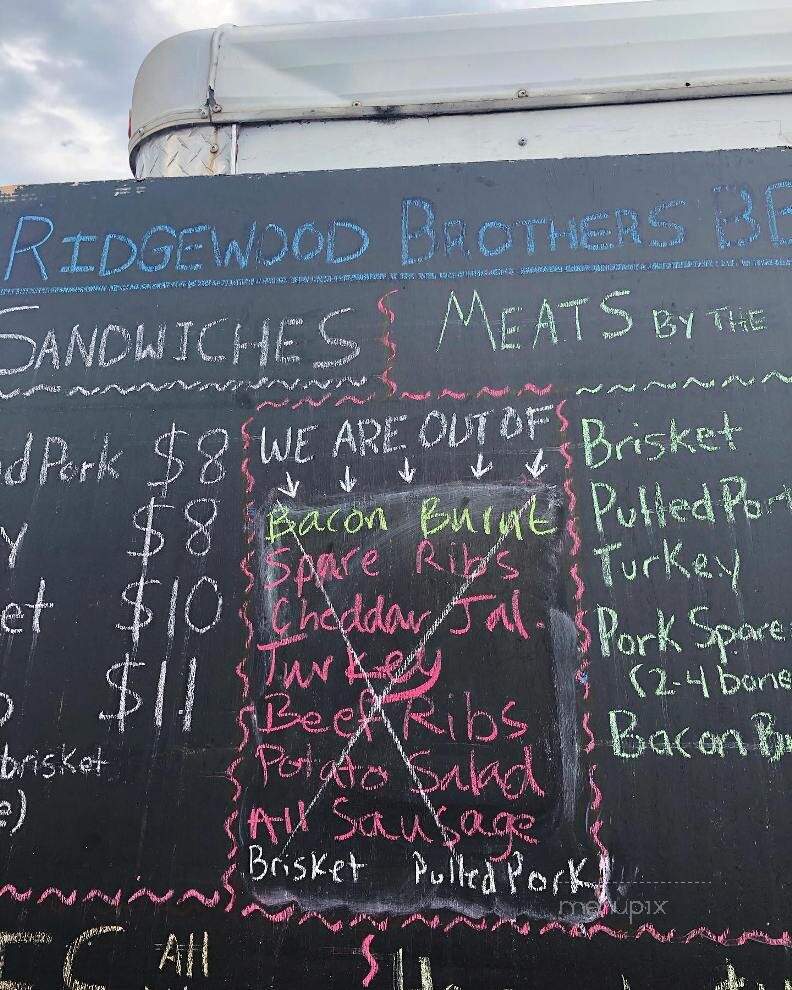 RIDGEWOOD BROTHERS
SANDWICHES
MEATS BY THE
Pork $8
$8
$10
$11
brisket
WE ARE OUT OF
Bacon Burnt
Spare Ribs
Cheddar Jal.
Turkey
Beef Ribs
Potato Salad
All Sausage
Brisket Pulled Pork
Brisket
Pulled
Turkey
Pork Spare
(2-4 bone
Bacon
All
menupix